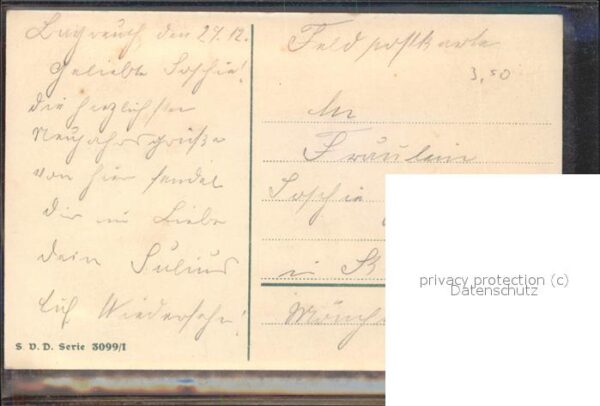 den 27. 12.
Geliebte Soschie!
die herzlichsten
Neujahrsgrüße
von hier sendet
dir in Liebe
dein Julius
Auf Wiedersehn!
S. V. D. Serie 3099/1
Feldpostkarte
3,50
An
Fräulein
Soschie
in
privacy protection (c)
Datenschutz